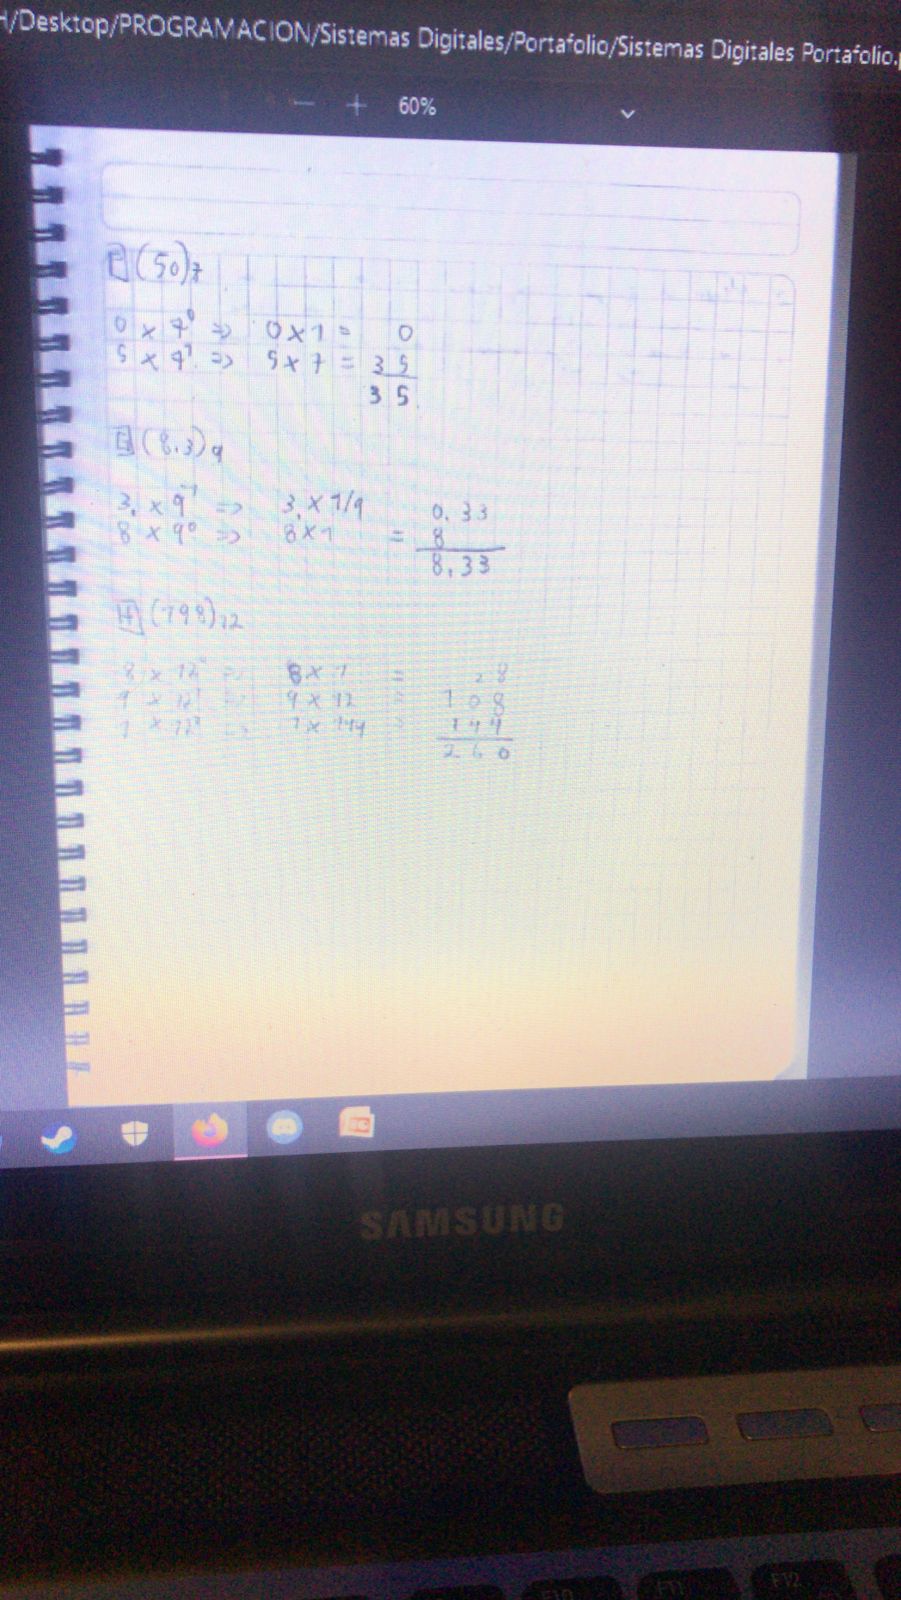 /Desktop/PROGRAMACION/Sistemas Digitales/Portafolio/Sistemas Digitales Portafolio.p
60%
(50)7
0 x 7^0 => 0x1 = 0
5 x 7^1 => 5x7 = 35
35
(8.3)9
3. x 9^-1 => 3. x 1/9 0.33
8 x 9^0 => 8x1 = 8
8,33
H (198)12
8 x 12^0 => 8x1 = 8
9 x 12^1 => 9 x 12 = 108
1 x 12^2 => 1 x 144 = 144
260
SAMSUNG
F10
F11
F12